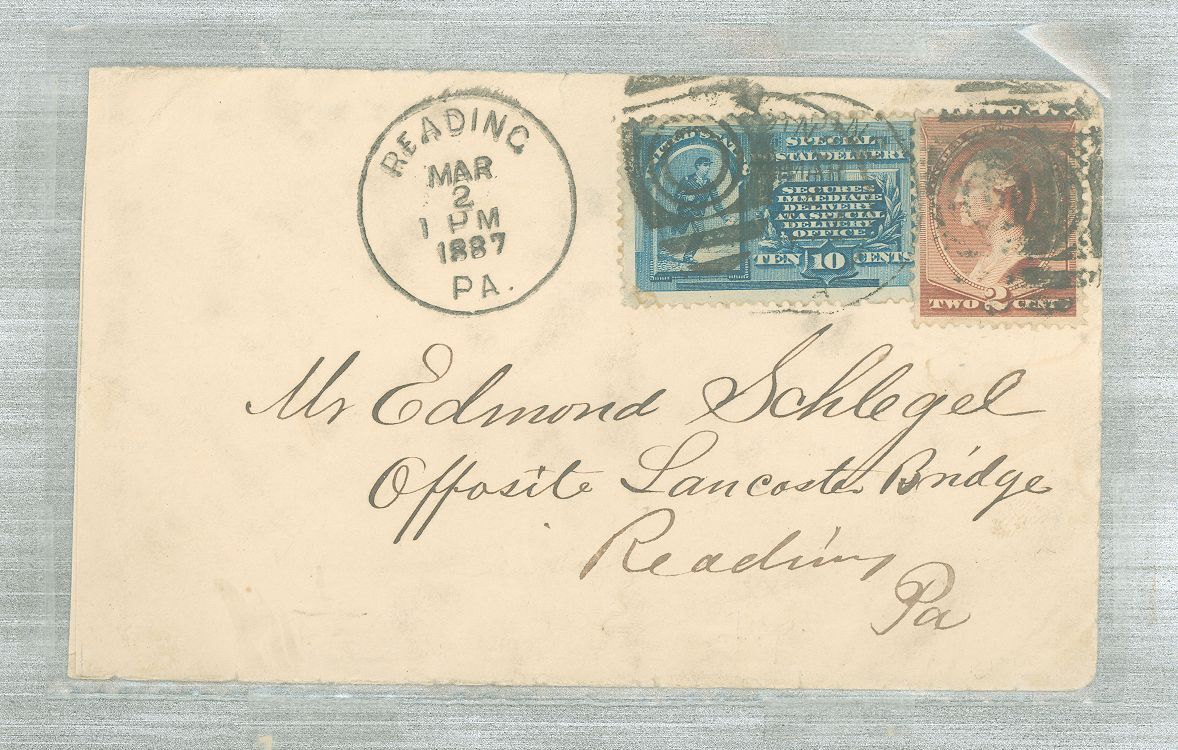 READING
MAR
2
1 PM
1887
PA.
UNITED STATES
SPECIAL
POSTAL DELIVERY
SECURES
IMMEDIATE
DELIVERY
AT A SPECIAL
DELIVERY
OFFICE.
TEN 10 CENTS
TWO 2 CENTS
Mr Edmond Schlegel
Opposite Lancaster Bridge
Reading
Pa